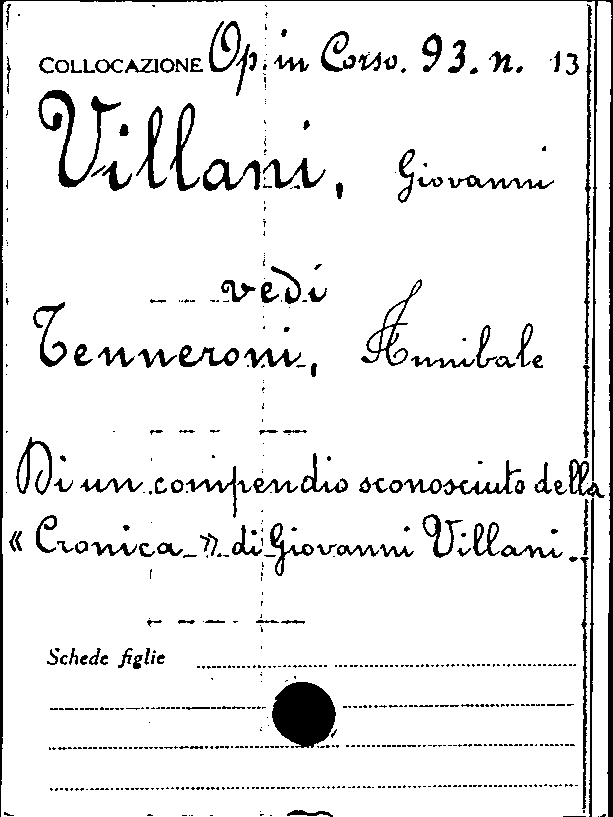 COLLOCAZIONE Op. in Corso. 93. n. 13
Villani, Giovanni
vedi
Tenneroni, Annibale
Di un compendio sconosciuto della
« Cronica » di Giovanni Villani.
Schede figlie